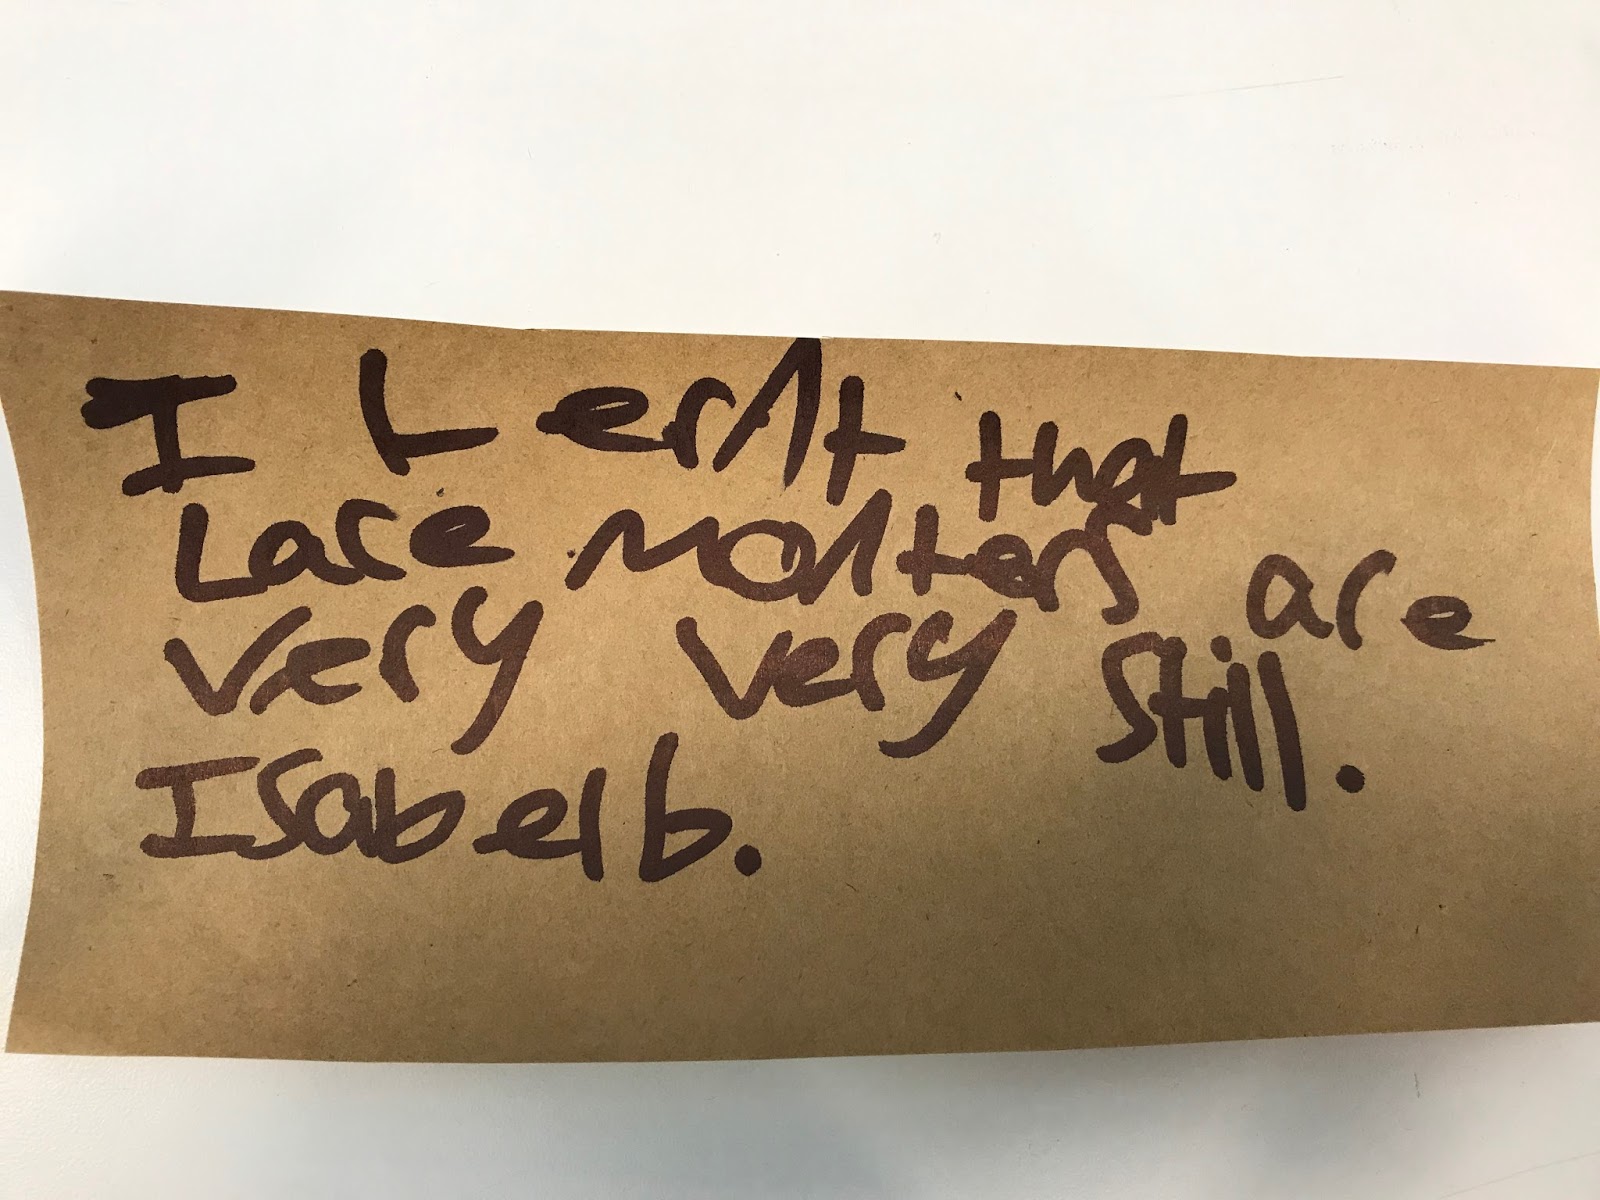 I Lernt that
Lace monters are
very very still.
Isabel b.